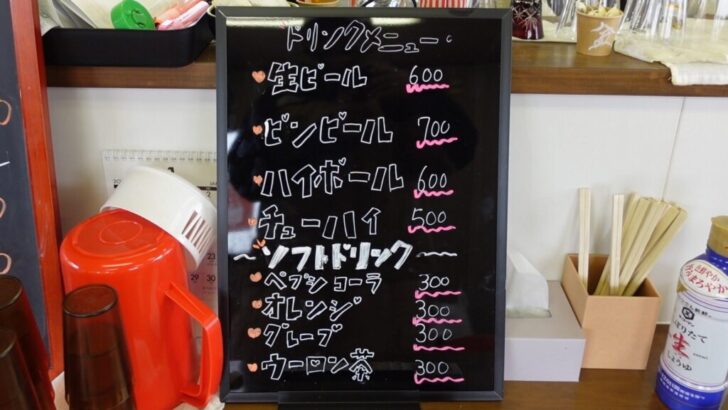 ドリンクメニュー
生ビール 600
ビンビール 700
ハイボール 600
チューハイ 500
〜ソフトドリック〜
ペプシコーラ 300
オレンジ 300
グレープ 300
ウーロン茶 300
生
しょうゆ